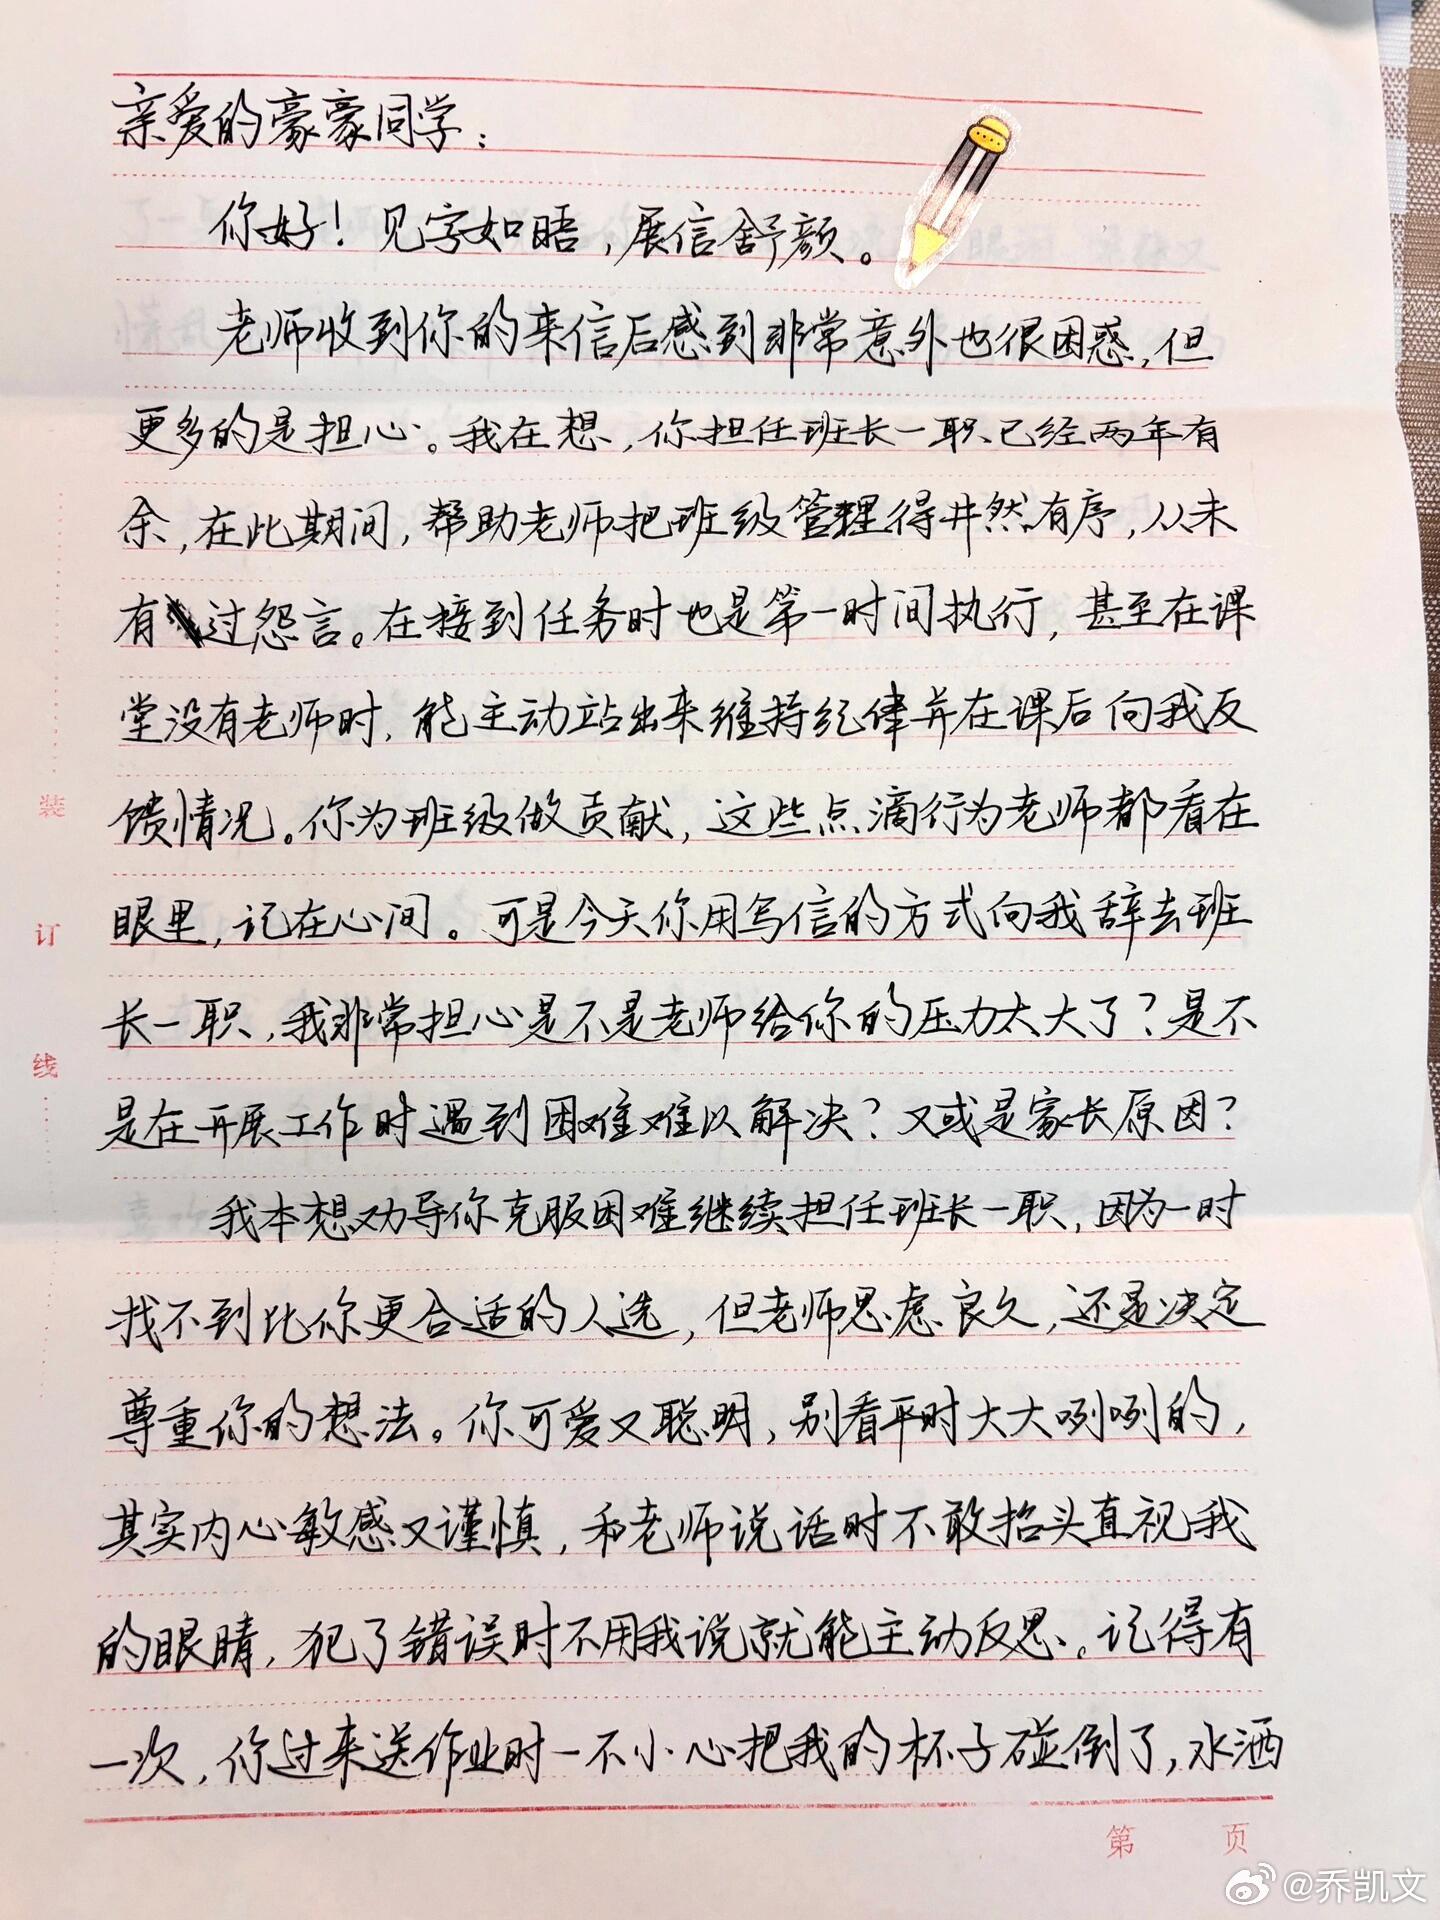 亲爱的豪豪同学：
你好！见字如晤，展信舒颜。
老师收到你的来信后感到非常意外也很困惑，但
更多的是担心。我在想，你担任班长一职已经两年有
余，在此期间，帮助老师把班级管理得井然有序，从未
有过怨言。在接到任务时也是第一时间执行，甚至在课
堂没有老师时，能主动站出来维持纪律并在课后向我反
馈情况。你为班级做贡献，这些点滴行为老师都看在
眼里，记在心间。可是今天你用写信的方式向我辞去班
长一职，我非常担心是不是老师给你的压力太大了？是不
是在开展工作时遇到困难难以解决？又或是家长原因？
我本想劝导你克服困难继续担任班长一职，因为一时
找不到比你更合适的人选，但老师思虑良久，还是决定
尊重你的想法。你可爱又聪明，别看平时大大咧咧的，
其实内心敏感又谨慎，和老师说话时不敢抬头直视我
的眼睛，犯了错误时不用我说就能主动反思。记得有
一次，你过来送作业时一不小心把我的杯子碰倒了，水洒
装
订
线
第 页
@乔凯文